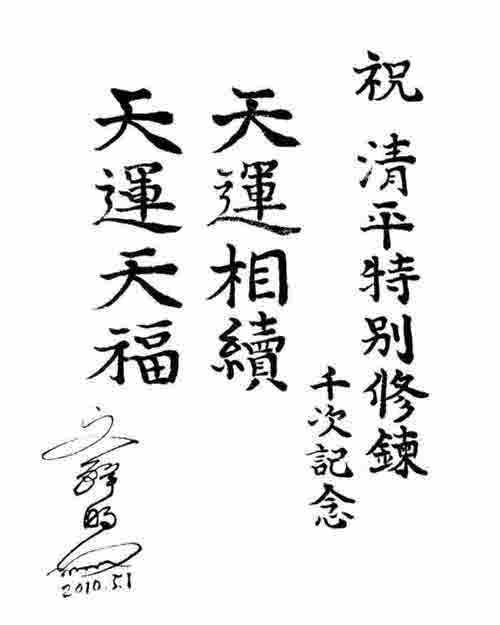 祝 清平特別修鍊
千次記念
天運相續
天運天福
文鮮明
2010.5.1